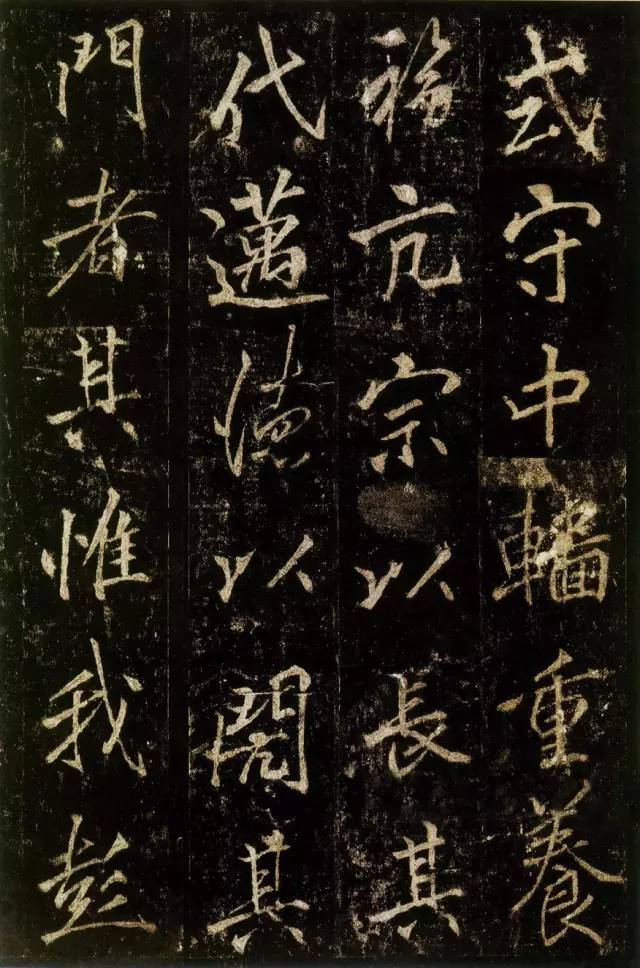 式守中輜重養
福亢宗以長其
代邁德以閎其
門者其惟我彭